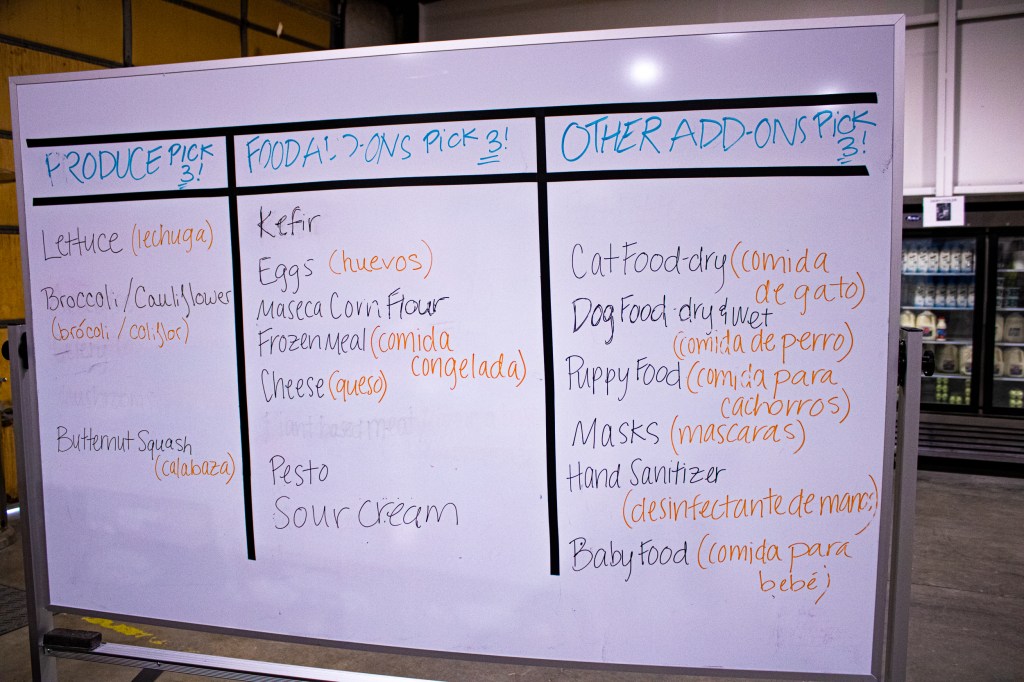 PRODUCE PICK 3!
Lettuce (lechuga)
Broccoli/Cauliflower
(brócoli/coliflor)
Butternut Squash
(calabaza)
FOOD ADD-ONS PICK 3!
Kefir
Eggs (huevos)
Maseca Corn Flour
Frozen Meal (comida
congelada)
Cheese (queso)
Pesto
Sour Cream
OTHER ADD-ONS PICK 3!
Cat Food-dry (comida
de gato)
Dog Food-dry & wet
(comida de perro)
Puppy Food (comida para
cachorros)
Masks (mascaras)
Hand Sanitizer
(desinfectante de manos)
Baby Food (comida para
bebé)